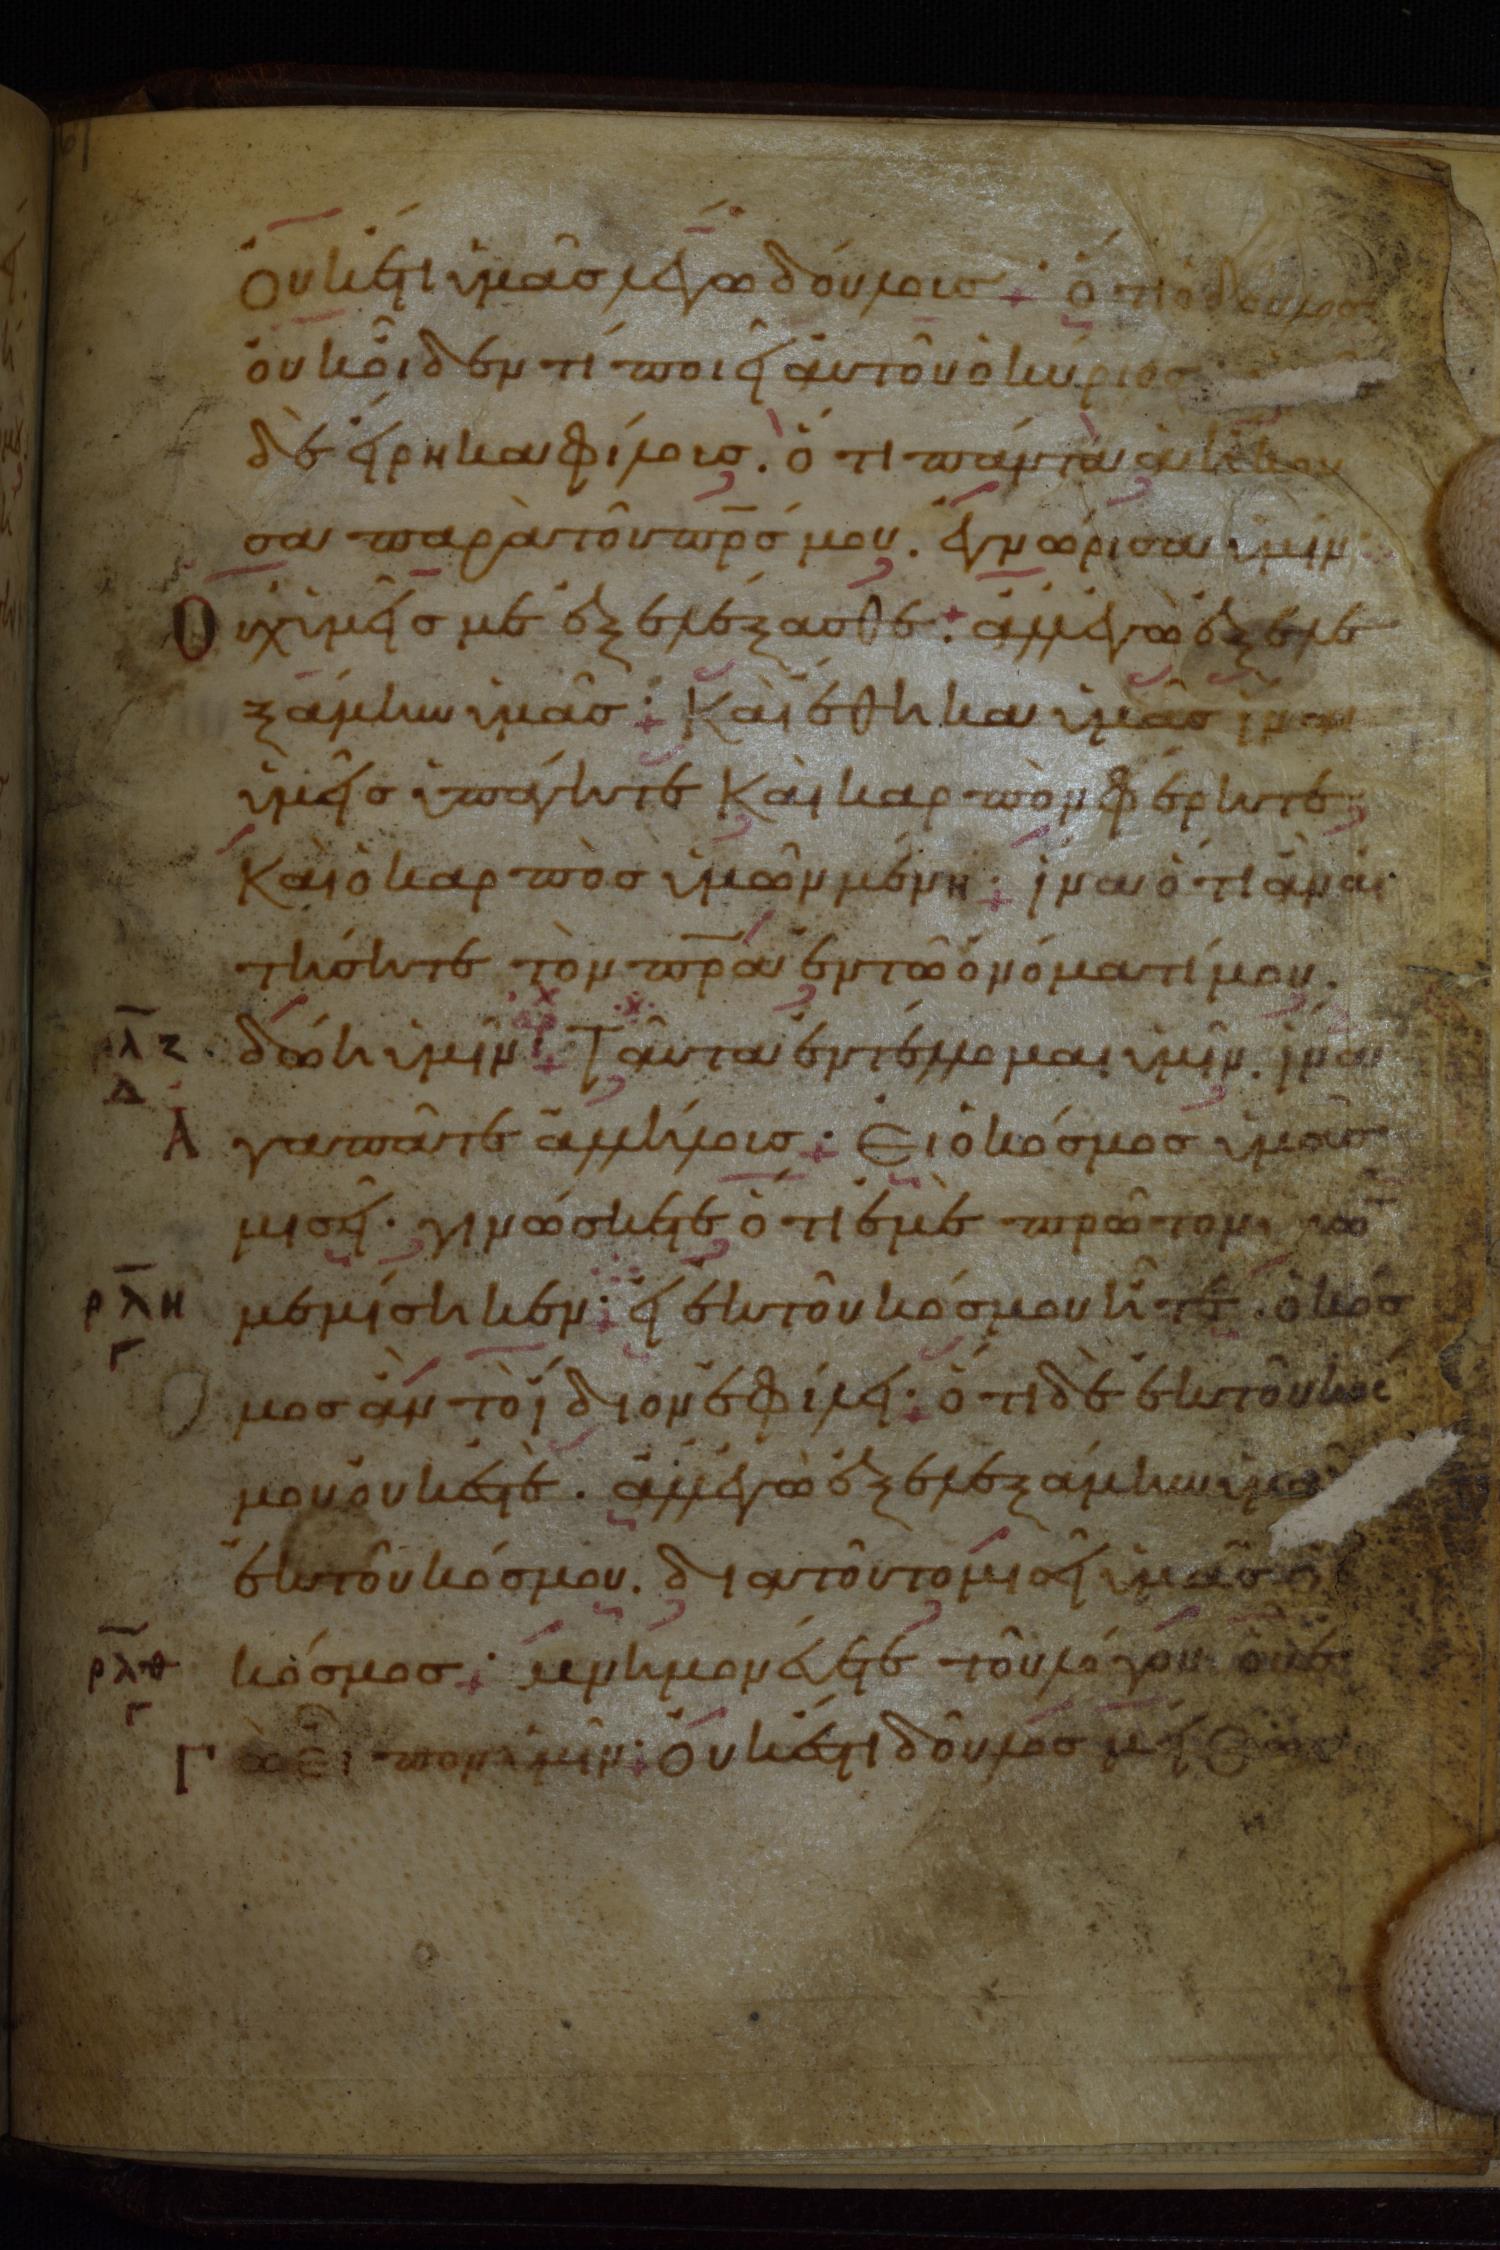 Οὐκέτι ὑμᾶσ λέγω δούλουσ· ὅτι ὁ δοῦλοσ
οὐκ οἶδεν τί ποιεῖ αὐτοῦ ὁ κύριοσ·
δὲ εἴρηκα φίλουσ. ὅτι πάντα ἃ ἤκου
σα παρὰ τοῦ πρσ μου. ἐγνώρισα ὑμῖν
Οὐχ ὑμεῖσ με ἐξελέξασθε· ἀλλ' ἐγὼ ἐξελε
ξάμην ὑμᾶσ· Καὶ ἔθηκα ὑμᾶσ ἵνα
ὑμεῖσ ὑπάγητε Καὶ καρπὸν φέρητε
Καὶ ὁ καρπὸσ ὑμῶν μένη· ἵνα ὅτι ἂν αἰ
τήσητε τὸν πρα ἐν τῶ ὀνόματί μου.
ρλζ δώη ὑμῖν· Ταῦτα ἐντέλλομαι ὑμῖν. ἵνα
Δ
Ἀγαπᾶτε ἀλλήλουσ· Ει ὁ κόσμοσ ὑμᾶσ
μισεῖ· γινώσκετε ὅτι ἐμὲ πρῶτον
ρλη μεμίσηκεν· εἰ ἐκ τοῦ κόσμου ἦτε. ὁ κόσ
Γ
μοσ ἂν τὸ ἴδιον ἐφίλει· ὅτι δὲ ἐκ τοῦ κόσ
μου οὐκ ἐστέ. ἀλλ' ἐγὼ ἐξελεξάμην ὑμᾶσ
ἐκ τοῦ κόσμου. διὰ τοῦτο μισεῖ ὑμᾶσ ὁ
ρλθ κόσμοσ· μνημονεύετε τοῦ λόγου οὗ ἐ
Γ
Γὼ εἶπον ὑμῖν· Οὐκ ἔστι δοῦλοσ μείζων